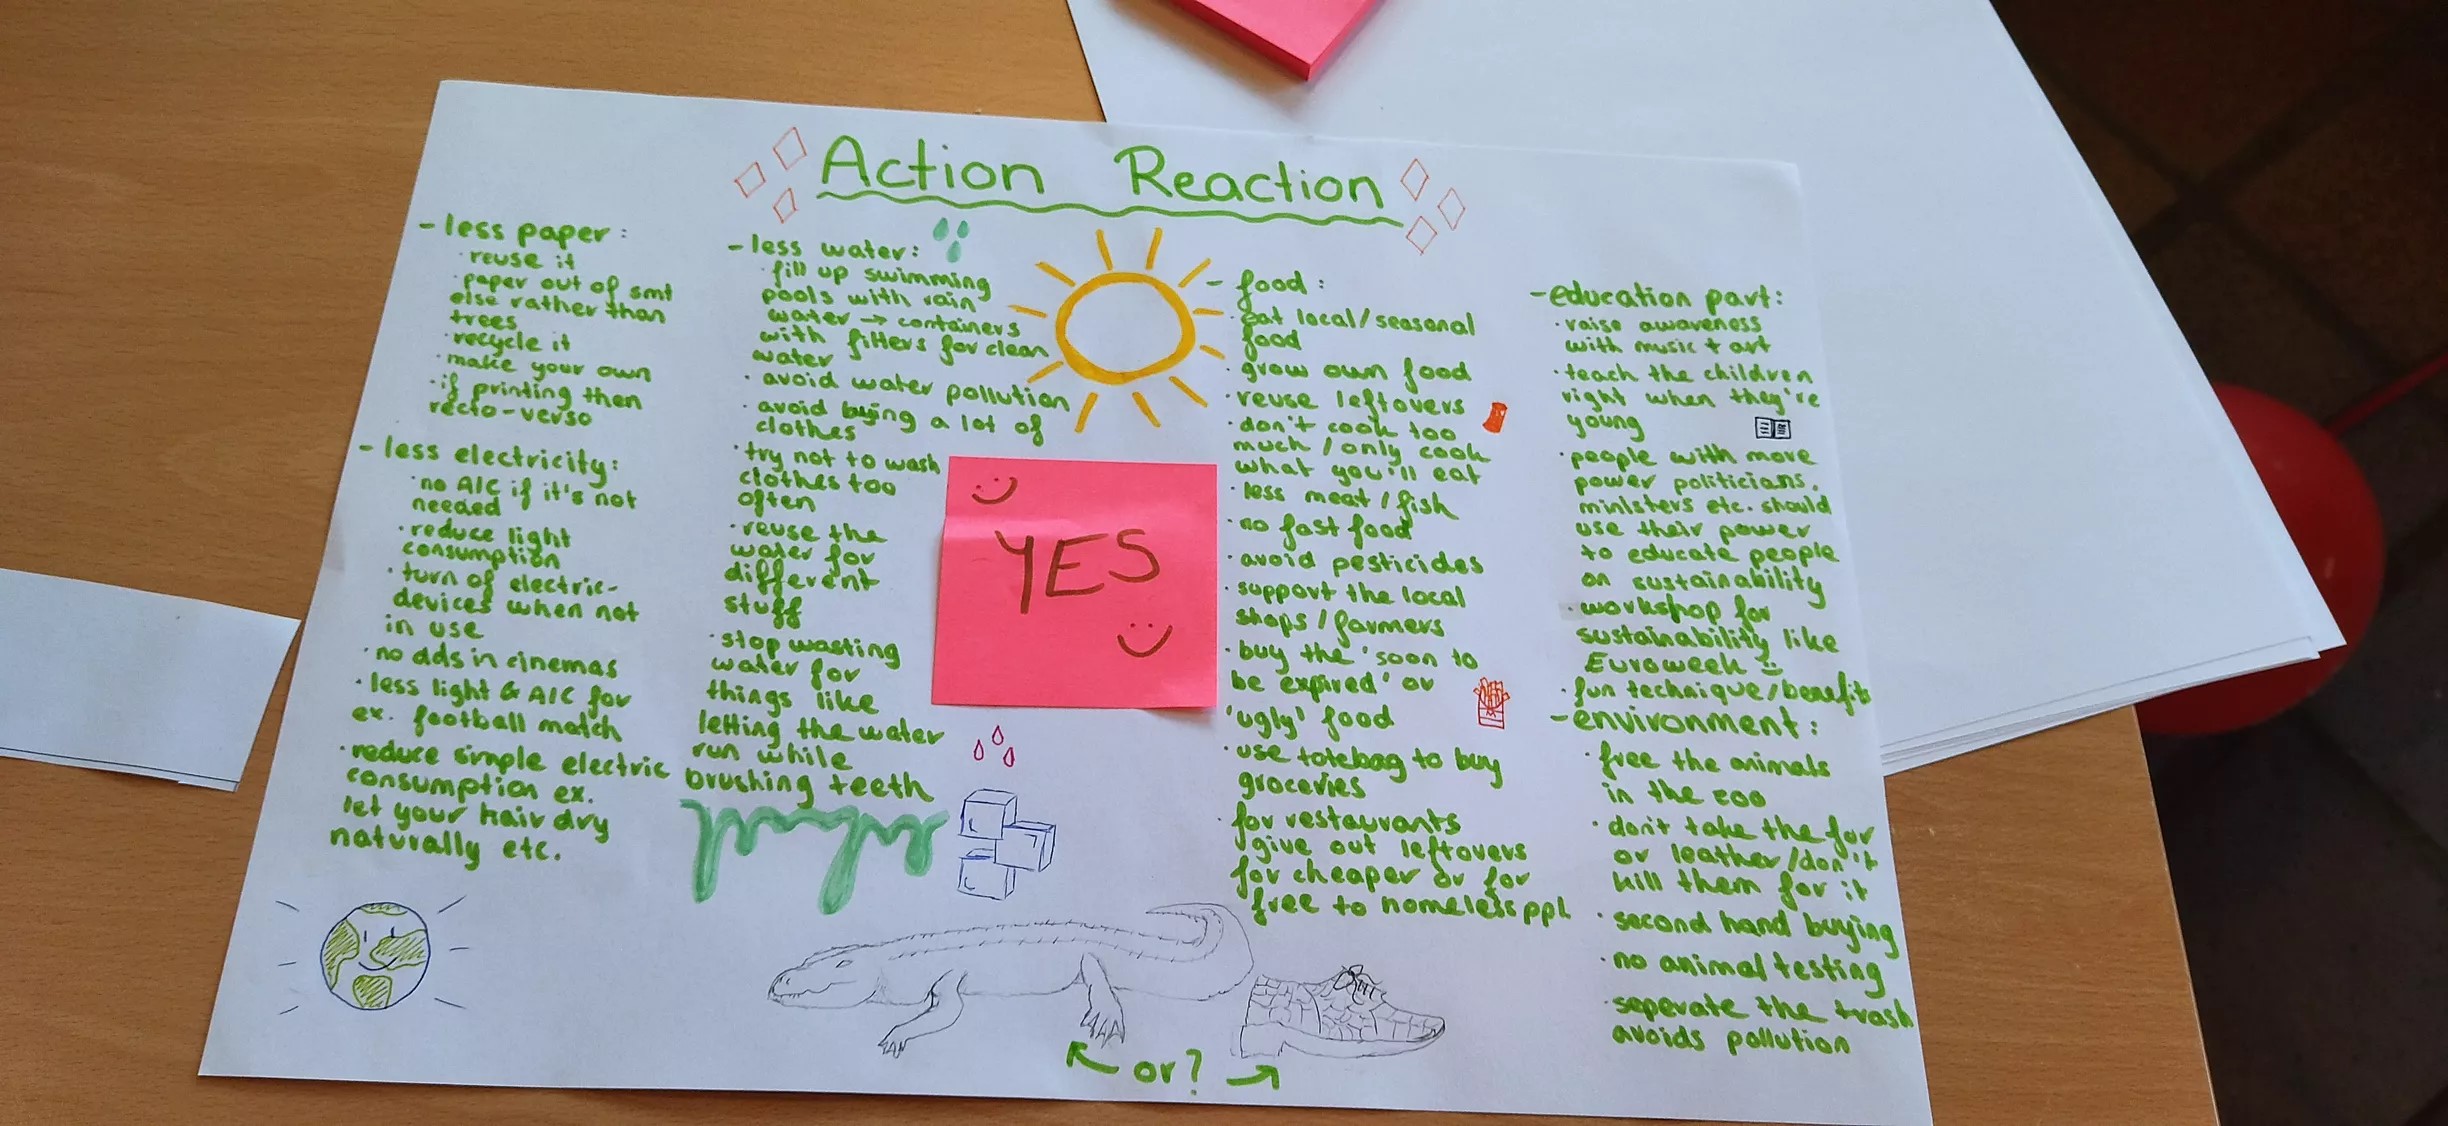 Action Reaction
- less paper:
· reuse it
· paper out of smt
else rather than
trees
· recycle it
· make your own
· if printing then
recto-verso
- less electricity:
· no A/C if it's not
needed
· reduce light
consumption
· turn of electric-
devices when not
in use
· no adds in cinemas
· less light & A/C for
ex. football match
· reduce simple electric
consumption ex.
let your hair dry
naturally etc.
- less water:
· fill up swimming
pools with rain
water → containers
with filters for clean
water
· avoid water pollution
· avoid buying a lot of
clothes
· try not to wash
clothes too
often
· reuse the
water for
different
stuff
· stop wasting
water for
things like
letting the water
run while
brushing teeth
YES
- food:
· eat local/seasonal
food
· grow own food
· reuse leftovers
· don't cook too
much / only cook
what you'll eat
· less meat / fish
· no fast food
· avoid pesticides
· support the local
shops / farmers
· buy the 'soon to
be expired' or
'ugly' food
· use totebag to buy
groceries
· for restaurants
give out leftovers
for cheaper or for
free to homeless ppl
- education part:
· raise awareness
with music + art
· teach the children
right when they're
young
· people with more
power politicians,
ministers etc. should
use their power
to educate people
on sustainability
· workshop for
sustainability like
Euroweek
· fun technique/benefits
- environment:
· free the animals
in the zoo
· don't take the fur
or leather/don't
kill them for it
· second hand buying
· no animal testing
· seperate the trash
avoids pollution
← or? →